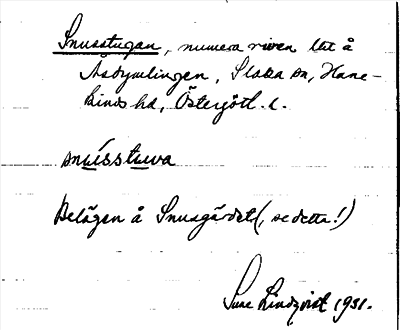 Snusstugan, numera riven låt å
Åsbymlingen, Slaka sn, Hane-
kinds hd, Östergötl. l.
snu̲ísstu̲va
Belägen å Snusgärdet (, se detta!)
Sune Lindqvist 1931.